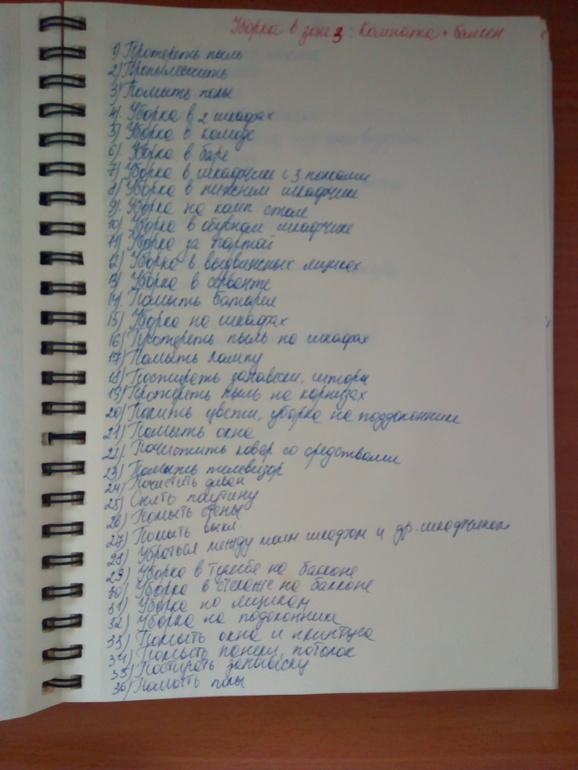 Уборка в зоне 3: Комната + балкон
1) Протереть пыль
2) Пропылесосить
3) Помыть полы
4) Уборка в 2 шкафах
5) Уборка в комоде
6) Уборка в баре
7) Уборка в шкафчике с 3 полками
8) Уборка в нижнем шкафчике
9) Уборка на комп. столе
10) Уборка в обувном шкафчике
11) Уборка за партой
12) Уборка в выдвижных ящиках
13) Уборка в серванте
14) Помыть батареи
15) Уборка на шкафах
16) Протереть пыль на шкафах
17) Помыть лампу
18) Постирать занавески, шторы
19) Протереть пыль на карнизах
20) Полить цветы, уборка на подоконнике
21) Помыть окна
22) Почистить ковер со средствами
23) Помыть телевизор
24) Почистить диван
25) Снять паутину
26) Помыть стены
27) Помыть
28) Убраться между моим шкафом и др. шкафчиком
29) Уборка в тумбе на балконе
30) Уборка в стелаже на балконе
31) Уборка по ящикам
32) Уборка на подоконнике
33) Помыть окна и плинтуса
34) Помыть панели, потолок
35) Постирать занавеску
36) Помыть полы